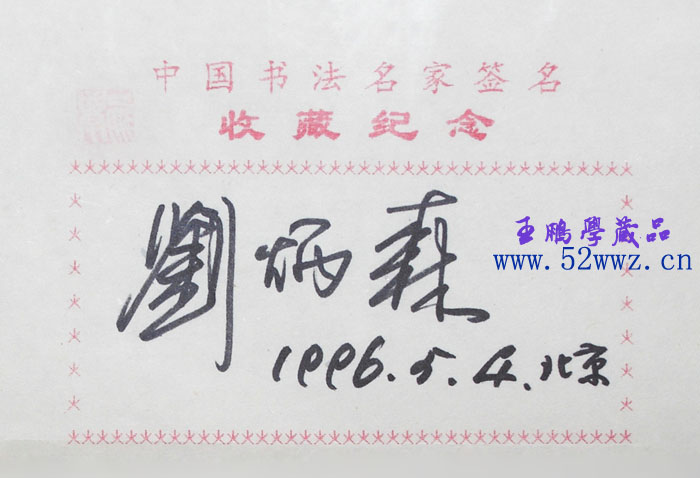 中国书法名家签名
收藏纪念
劉炳森
1996.5.4.北京
王鹏學藏品
www.52wwz.cn